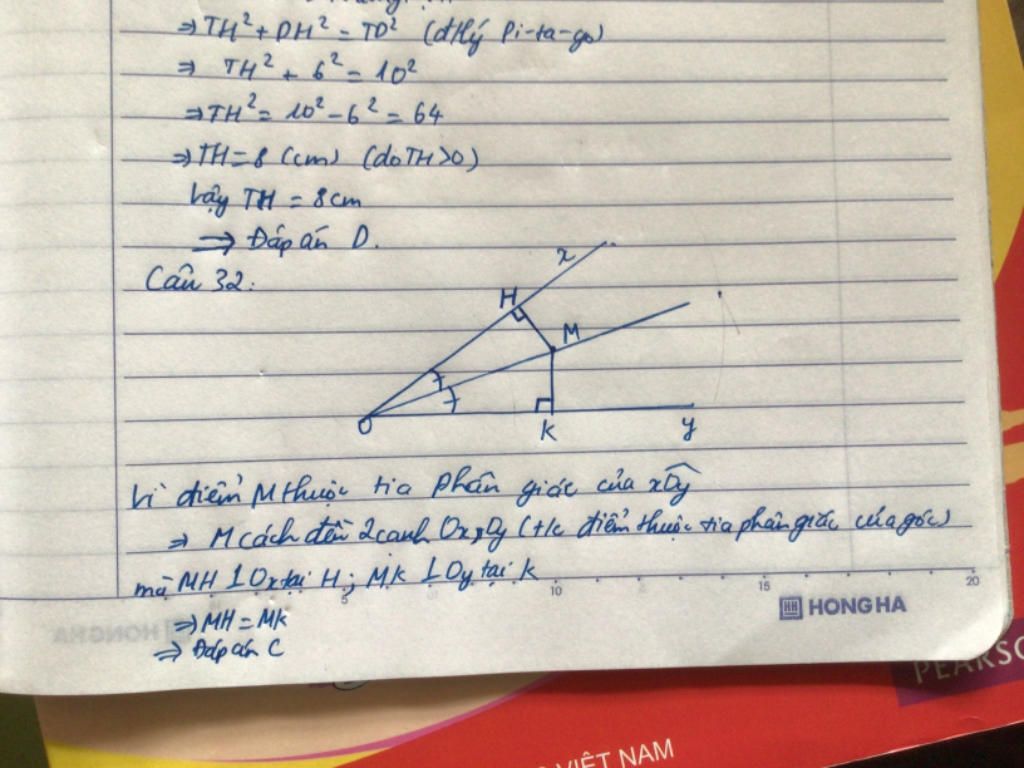 ⇒ TH² + DH² = TD² (đ/lý Pi-ta-go)
⇒ TH² + 6² = 10²
⇒ TH² = 10² - 6² = 64
⇒ TH = 8 (cm) (do TH > 0)
Vậy TH = 8cm
⇒ Đáp án D.
Câu 32:
x
H
M
O
K
y
Vì điểm M thuộc tia phân giác của xOy
⇒ M cách đều 2 cạnh Ox, Oy (t/c điểm thuộc tia phân giác của góc)
mà MH ⊥ Ox tại H; MK ⊥ Oy tại K
5 10 15 20
HONG HA
⇒ MH = MK
⇒ Đáp án C
PEARSO
VIỆT NAM